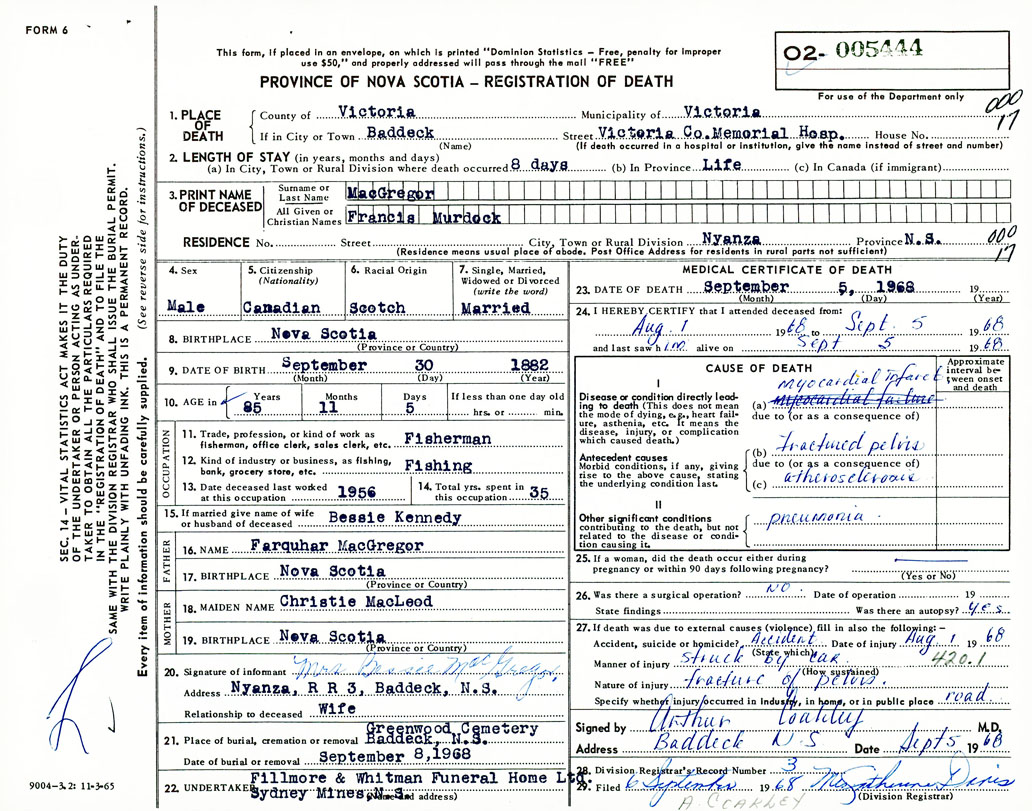 FORM 6
This form, if placed in an envelope, on which is printed "Dominion Statistics – Free, penalty for improper
use $50," and properly addressed will pass through the mail "FREE"
PROVINCE OF NOVA SCOTIA – REGISTRATION OF DEATH
O2- 005444
For use of the Department only
000
17
1. PLACE OF DEATH
County of Victoria Municipality of Victoria
If in City or Town Baddeck Street Victoria Co.Memorial Hosp. House No.
(Name) (If death occurred in a hospital or institution, give the name instead of street and number)
2. LENGTH OF STAY (in years, months and days)
(a) In City, Town or Rural Division where death occurred 8 days (b) In Province Life (c) In Canada (if immigrant)
3. PRINT NAME OF DECEASED
Surname or Last Name MacGregor
All Given or Christian Names Francis Murdock
RESIDENCE No. Street City, Town or Rural Division Nyanza Province N.S.
(Residence means usual place of abode. Post Office Address for residents in rural parts not sufficient)
000
17
4. Sex
Male
5. Citizenship
(Nationality)
Canadian
6. Racial Origin
Scotch
7. Single, Married,
Widowed or Divorced
(write the word)
Married
8. BIRTHPLACE Nova Scotia
(Province or Country)
9. DATE OF BIRTH September 30 1882
(Month) (Day) (Year)
10. AGE in Years Months Days If less than one day old
85 11 5 hrs. or min.
OCCUPATION
11. Trade, profession, or kind of work as
fisherman, office clerk, sales clerk, etc. Fisherman
12. Kind of industry or business, as fishing,
bank, grocery store, etc. Fishing
13. Date deceased last worked
at this occupation 1956
14. Total yrs. spent in
this occupation 35
15. If married give name of wife
or husband of deceased Bessie Kennedy
FATHER
16. NAME Farquhar MacGregor
17. BIRTHPLACE Nova Scotia
(Province or Country)
MOTHER
18. MAIDEN NAME Christie MacLeod
19. BIRTHPLACE Nova Scotia
(Province or Country)
20. Signature of informant Mrs Bessie MacGregor,
Address Nyanza, R R 3, Baddeck, N.S.
Relationship to deceased Wife
21. Place of burial, cremation or removal Greenwood Cemetery
Baddeck, N.S.
Date of burial or removal September 8,1968
22. UNDERTAKER Fillmore & Whitman Funeral Home Ltd.
Sydney Mines,N.S.
(Name and address)
MEDICAL CERTIFICATE OF DEATH
23. DATE OF DEATH September 5, 1968 19
(Month) (Day) (Year)
24. I HEREBY CERTIFY that I attended deceased from:
Aug. 1 1968 to Sept. 5 1968
and last saw him alive on Sept 5 1968
CAUSE OF DEATH
Approximate interval between onset and death
I
Disease or condition directly leading to death (This does not mean the mode of dying, e.g., heart failure, asthenia, etc. It means the disease, injury, or complication which caused death.)
myocardial Infarct
(a) myocardial failure
due to (or as a consequence of)
Antecedent causes
Morbid conditions, if any, giving rise to the above cause, stating the underlying condition last.
(b) fractured pelvis
due to (or as a consequence of)
(c) atherosclerosis
II
Other significant conditions
contributing to the death, but not
related to the disease or condition causing it.
pneumonia
25. If a woman, did the death occur either during
pregnancy or within 90 days following pregnancy?
(Yes or No)
26. Was there a surgical operation? NO. Date of operation 19
State findings Was there an autopsy? yes
27. If death was due to external causes (violence) fill in also the following: –
Accident, suicide or homicide? Accident Date of injury Aug. 1 1968
(State which)
Manner of injury struck by car. 420.1
(How sustained)
Nature of injury fracture of pelvis.
Specify whether injury occurred in Industry, in home, or in public place road
Signed by Arthur Coakley M.D.
Address Baddeck N.S Date Sept 5 1968
28. Division Registrar's Record Number 3
29. Filed 6 September 1968 Davis
(Division Registrar)
A. COAKLEY
SEC. 14 – VITAL STATISTICS ACT MAKES IT THE DUTY
OF THE UNDERTAKER OR PERSON ACTING AS UNDER-
TAKER TO OBTAIN ALL THE PARTICULARS REQUIRED
IN THE "REGISTRATION OF DEATH" AND TO FILE THE
SAME WITH THE DIVISION REGISTRAR WHO SHALL ISSUE THE BURIAL PERMIT.
WRITE PLAINLY WITH UNFADING INK. THIS IS A PERMANENT RECORD.
Every item of information should be carefully supplied. (See reverse side for instructions.)
9004–3.2: 11-3-65